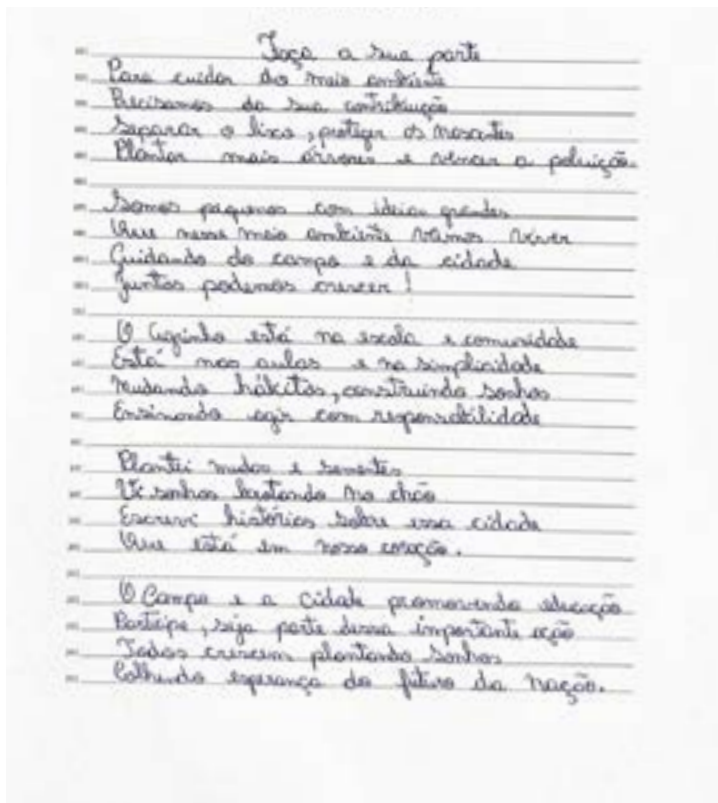 Faça a sua parte
Para cuidar do meio ambiente
Precisamos da sua contribuição
Separar o lixo, proteger as nascentes
Plantar mais árvores e vencer a poluição.
Somos pequenos com ideias grandes
Que nesse meio ambiente vamos viver
Cuidando do campo e da cidade
Juntos podemos crescer!
O Agrinho está na escola e comunidade
Está nas aulas e na simplicidade
Mudando hábitos, construindo sonhos
Ensinando agir com responsabilidade
Plantei mudas e sementes
Vi sonhos brotando no chão
Escrevi histórias sobre essa cidade
Que está em nosso coração.
O Campo e a cidade promovendo educação
Participe, seja parte dessa importante ação
Todos crescem plantando sonhos
Colhendo esperança do futuro da nação.